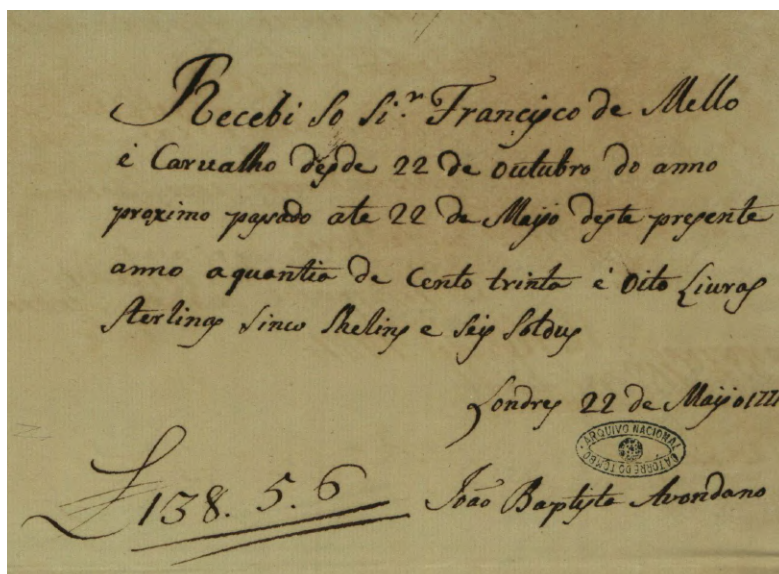 Recebi do Si.r Francisco de Mello
é Carvalho desde 22 de outubro do anno
proximo pasado ate 22 de Maijo deste presente
anno a quantia de Cento trinta é Oito Livras
Sterlinas Sinco Shelins e Seis Soldus
Londres 22 de Maijo 1771
ARQUIVO NACIONAL
DA TORRE DO TOMBO
£ 138. 5. 6 João Baptista Avondano